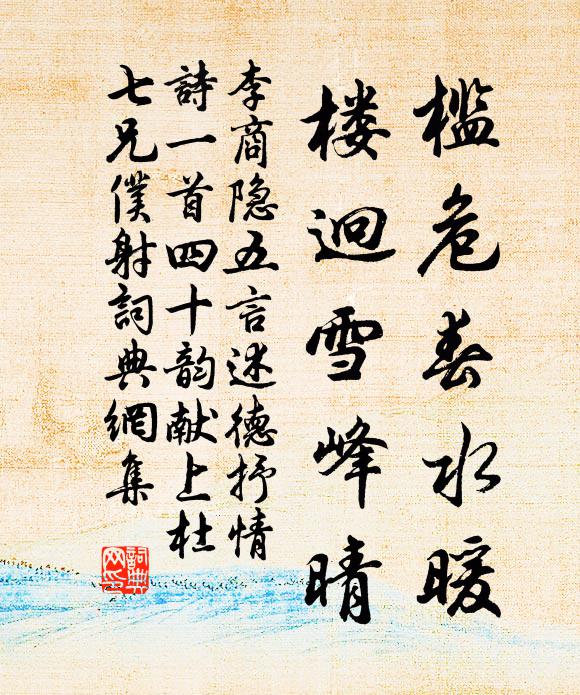 槛危春水暖
楼迥雪峰晴
李商隐五言述德抒情
詩一首四十韵献上杜
七兄僕射詞典網集
詞典网印